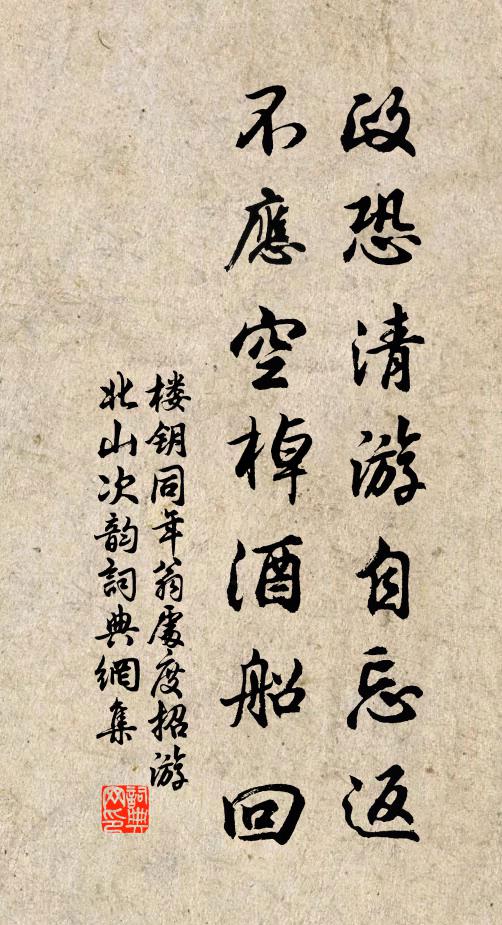 政恐清游自忘返
不應空棹酒船回
楼钥同年翁處度招游
北山次韵詞典網集
詞典
网印